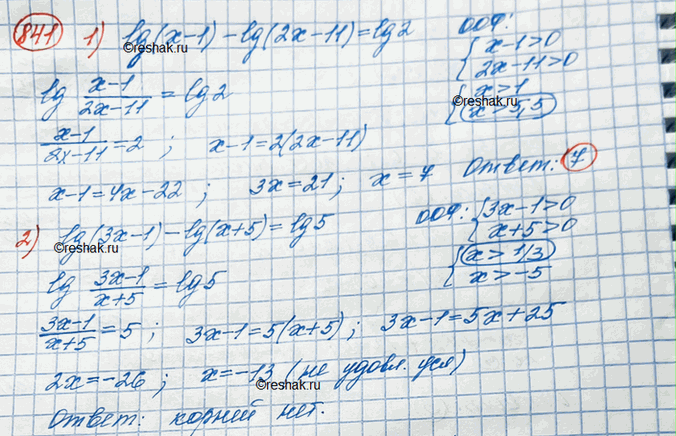 841 1) lg(x-1) - lg(2x-11) = lg2 ООФ:
{ x-1>0
{ 2x-11>0
lg (x-1)/(2x-11) = lg2
{ x>1
{ x>5,5
(x-1)/(2x-11) = 2 ; x-1=2(2x-11)
x-1=4x-22 ; 3x=21 ; x=7 Ответ: 7
2) lg(3x-1) - lg(x+5) = lg5 ООФ: { 3x-1>0
{ x+5>0
lg (3x-1)/(x+5) = lg5
{ x>1/3
{ x>-5
(3x-1)/(x+5) = 5 ; 3x-1=5(x+5) ; 3x-1=5x+25
2x=-26 ; x=-13 (не удовл. усл)
Ответ: корней нет.
©reshak.ru
©reshak.ru
©reshak.ru
©reshak.ru